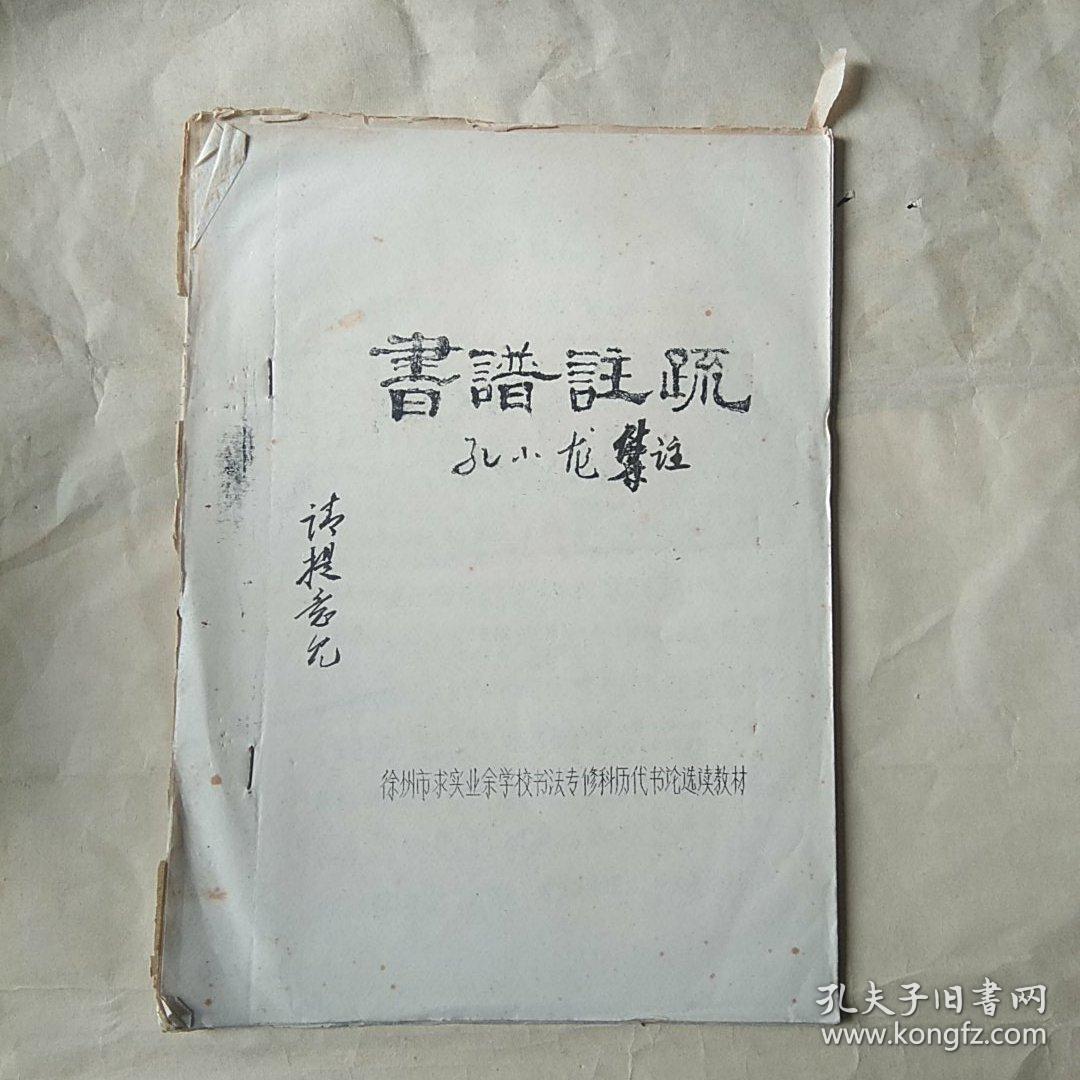 書譜註疏
孔小龙集註
请提意见
徐州市求实业余学校书法专修科历代书论选读教材
孔夫子旧書网
www.kongfz.com